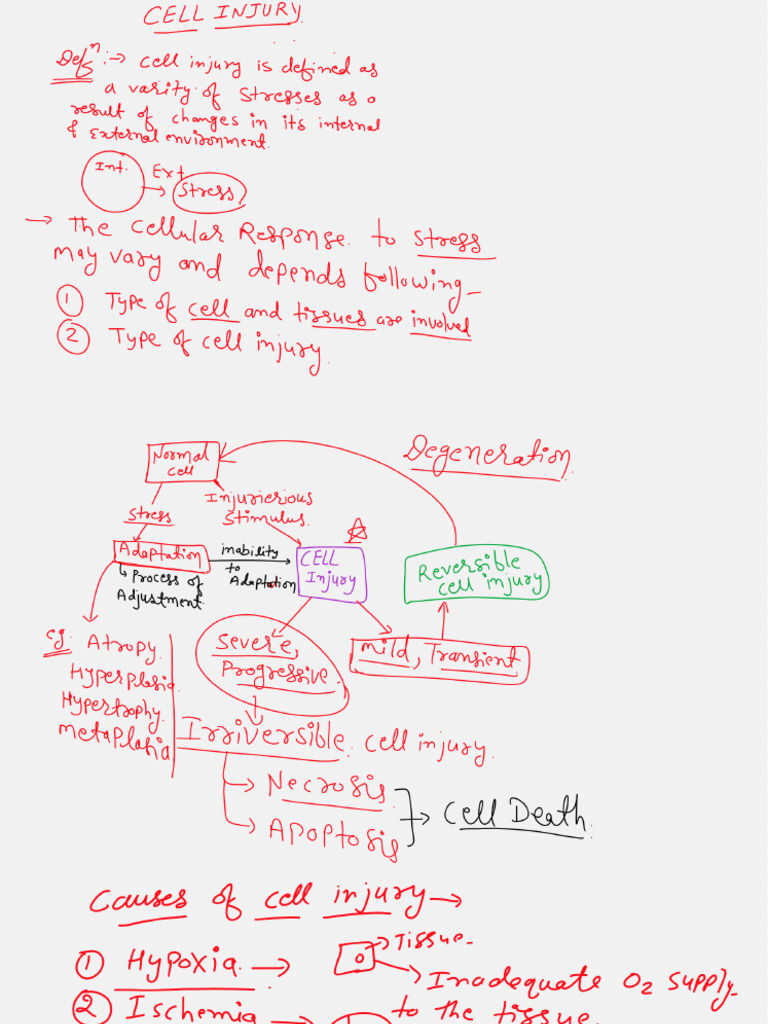 CELL INJURY
Defⁿ :→ cell injury is defined as
a varity of stresses as a
result of changes in its internal
& External environment.
Int. Ext
→ Stress
→ The cellular Response to stress
may vary and depends following-
① Type of cell and tissues are involved
② Type of cell injury.
Degeneration
Normal
cell
Stress
Injuricrious
stimulus.
Adaptation
inability
to
Adaptation
CELL
Injury
Reversible
cell injury
↳ Process of
Adjustment.
eg. Atropy.
Hyperplasia
Hypertrophy
metaplasia
Severe,
Progressive.
mild, Transient
Irriversible cell injury.
→ Necrosis
→ Apoptosis
→ Cell Death.
Causes of cell injury →
① Hypoxia. → Tissue.
→ Inadequate O₂ supply
② Ischemia → to the tissue.